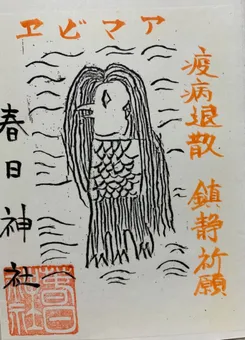 アマビヱ
疫病退散 鎮静祈願
春日神社